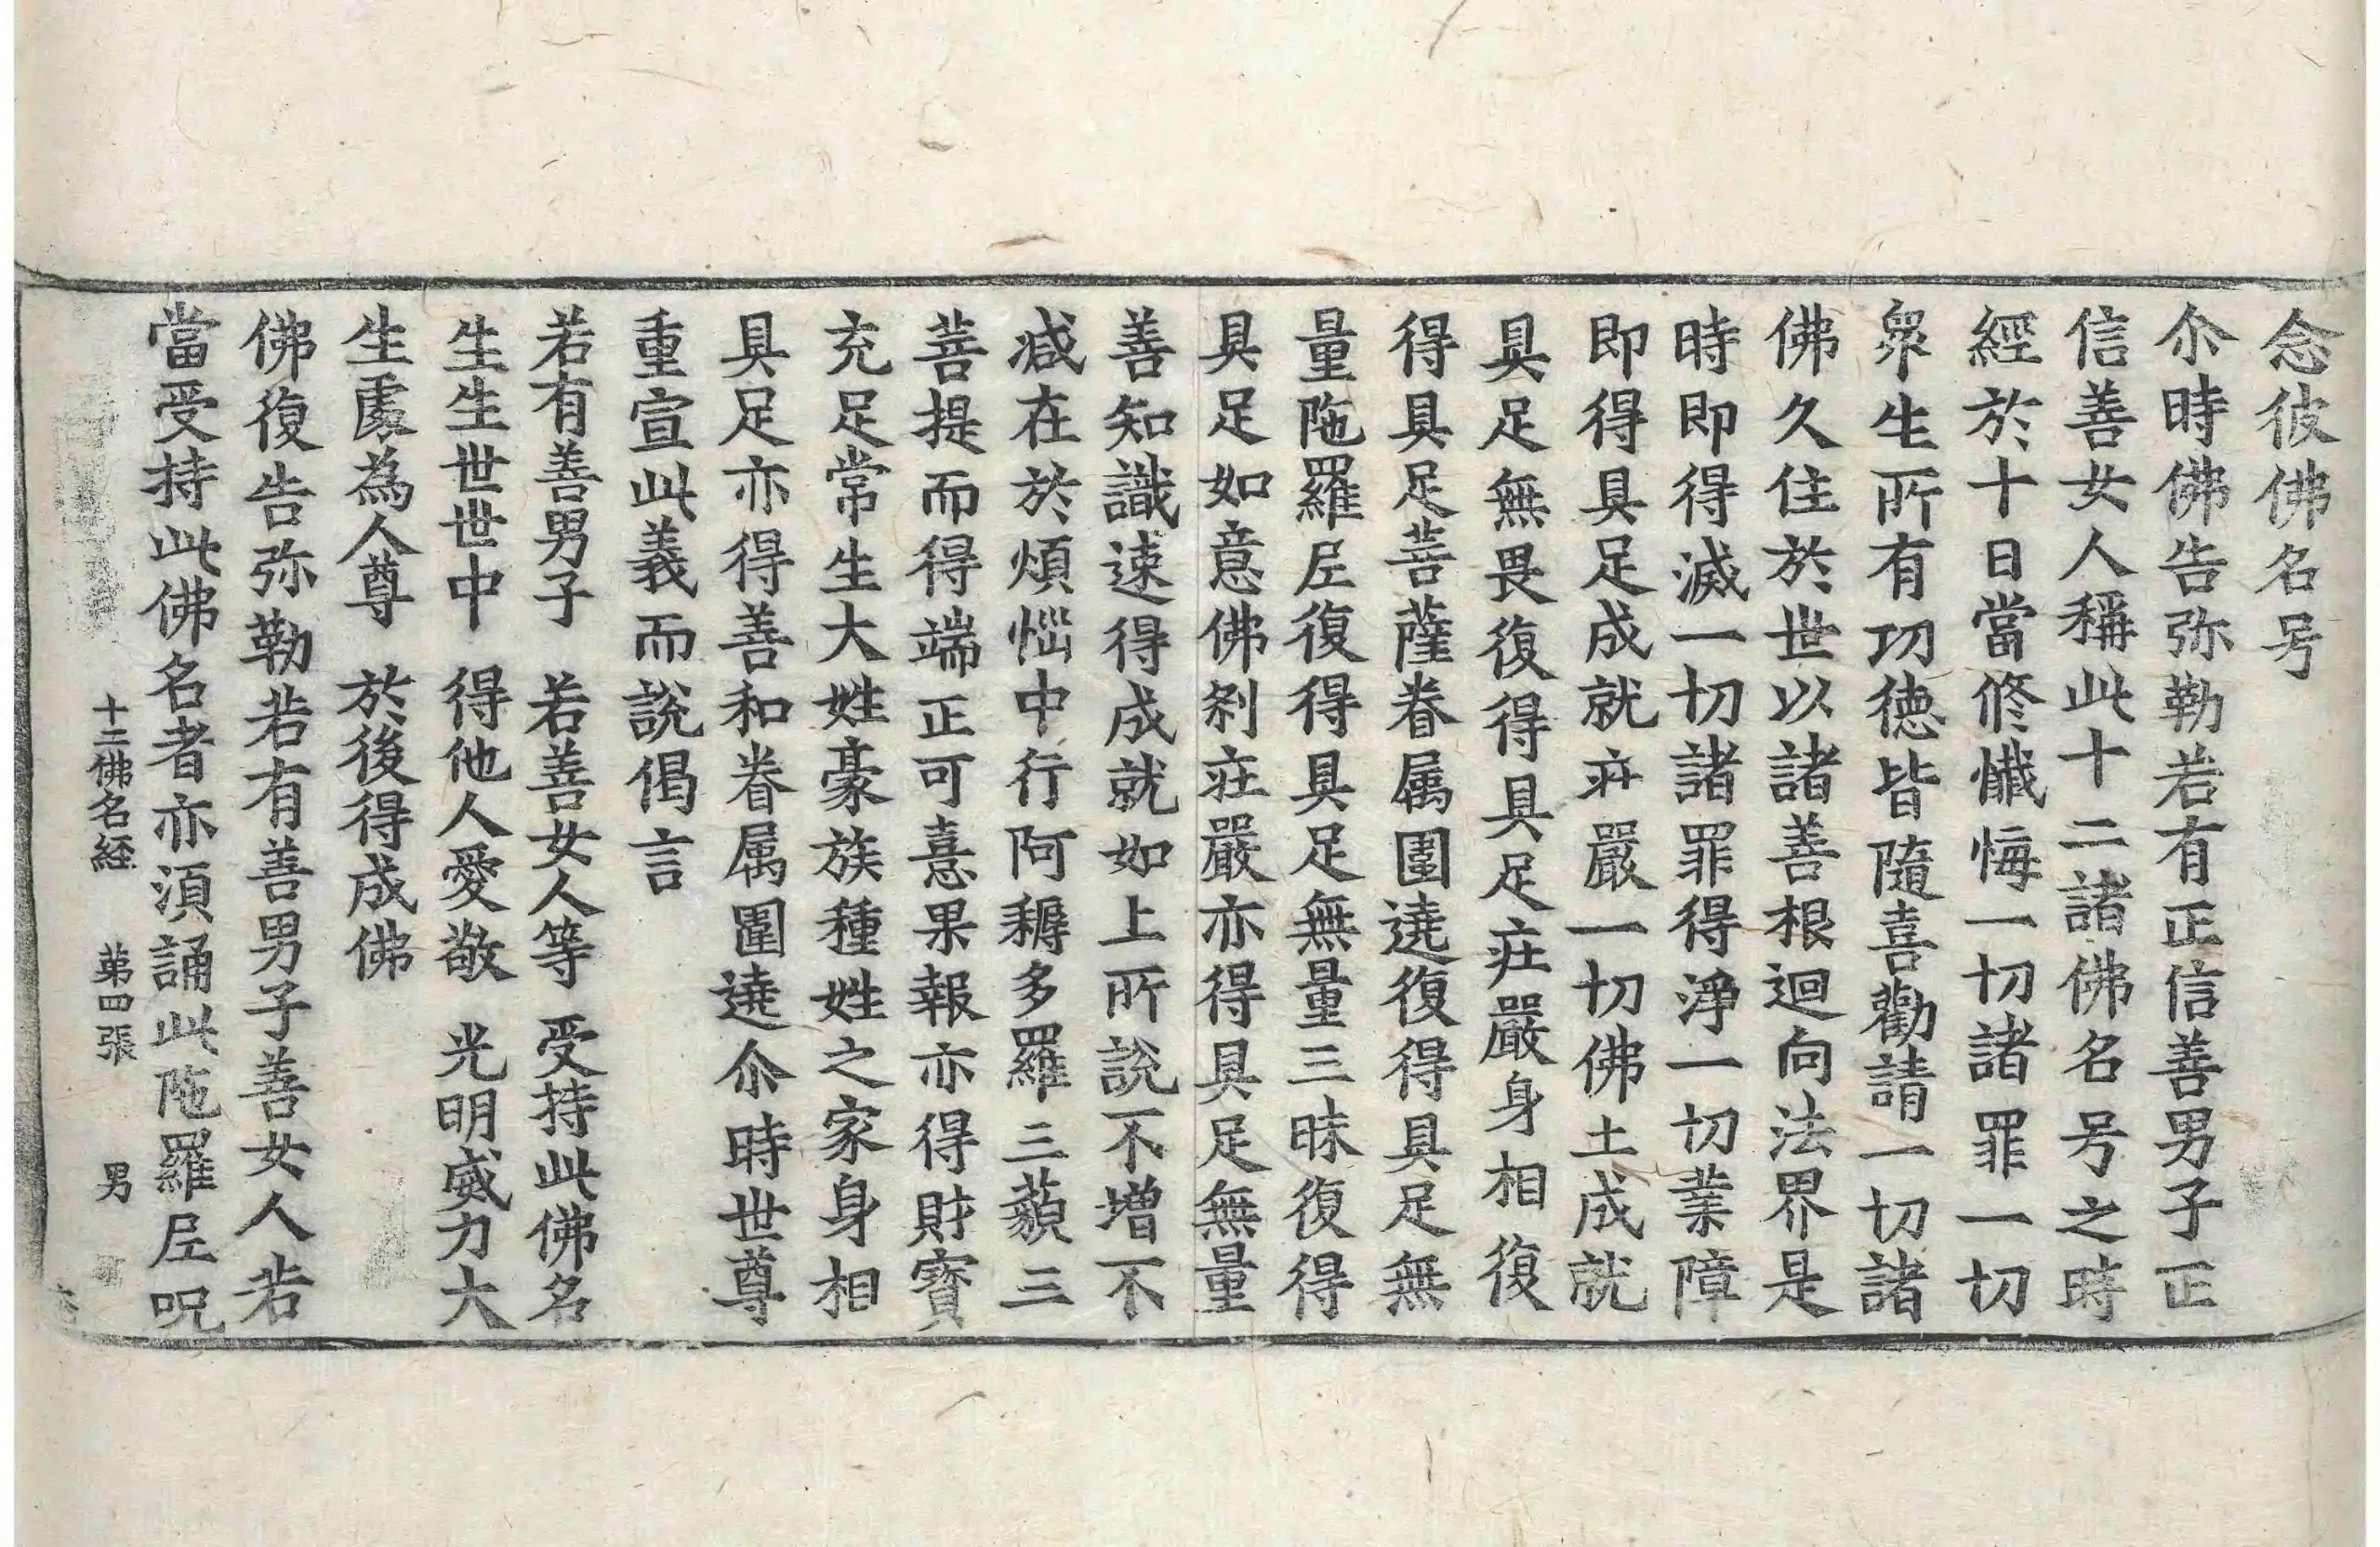 念彼佛名号
尒時佛告弥勒若有正信善男子正
信善女人稱此十二諸佛名号之時
經於十日當修懺悔一切諸罪一切
衆生所有功德皆隨喜勸請一切諸
佛久住於世以諸善根迴向法界是
時即得滅一切諸罪得淨一切業障
即得具足成就莊嚴一切佛土成就
具足無畏復得具足莊嚴身相復
得具足菩薩眷属圍遶復得具足無
量陁羅尼復得具足無量三昧復得
具足如意佛刹莊嚴亦得具足無量
善知識速得成就如上所說不增不
減在於煩惱中行阿耨多羅三藐三
菩提而得端正可憙果報亦得財寶
充足常生大姓豪族種姓之家身相
具足亦得善和眷属圍遶尒時世尊
重宣此義而說偈言
若有善男子　若善女人等　受持此佛名
生生世世中　得他人愛敬　光明威力大
生處為人尊　於後得成佛
佛復告弥勒若有善男子善女人若
當受持此佛名者亦須誦此陁羅尼呪
十二佛名經　第四張　男